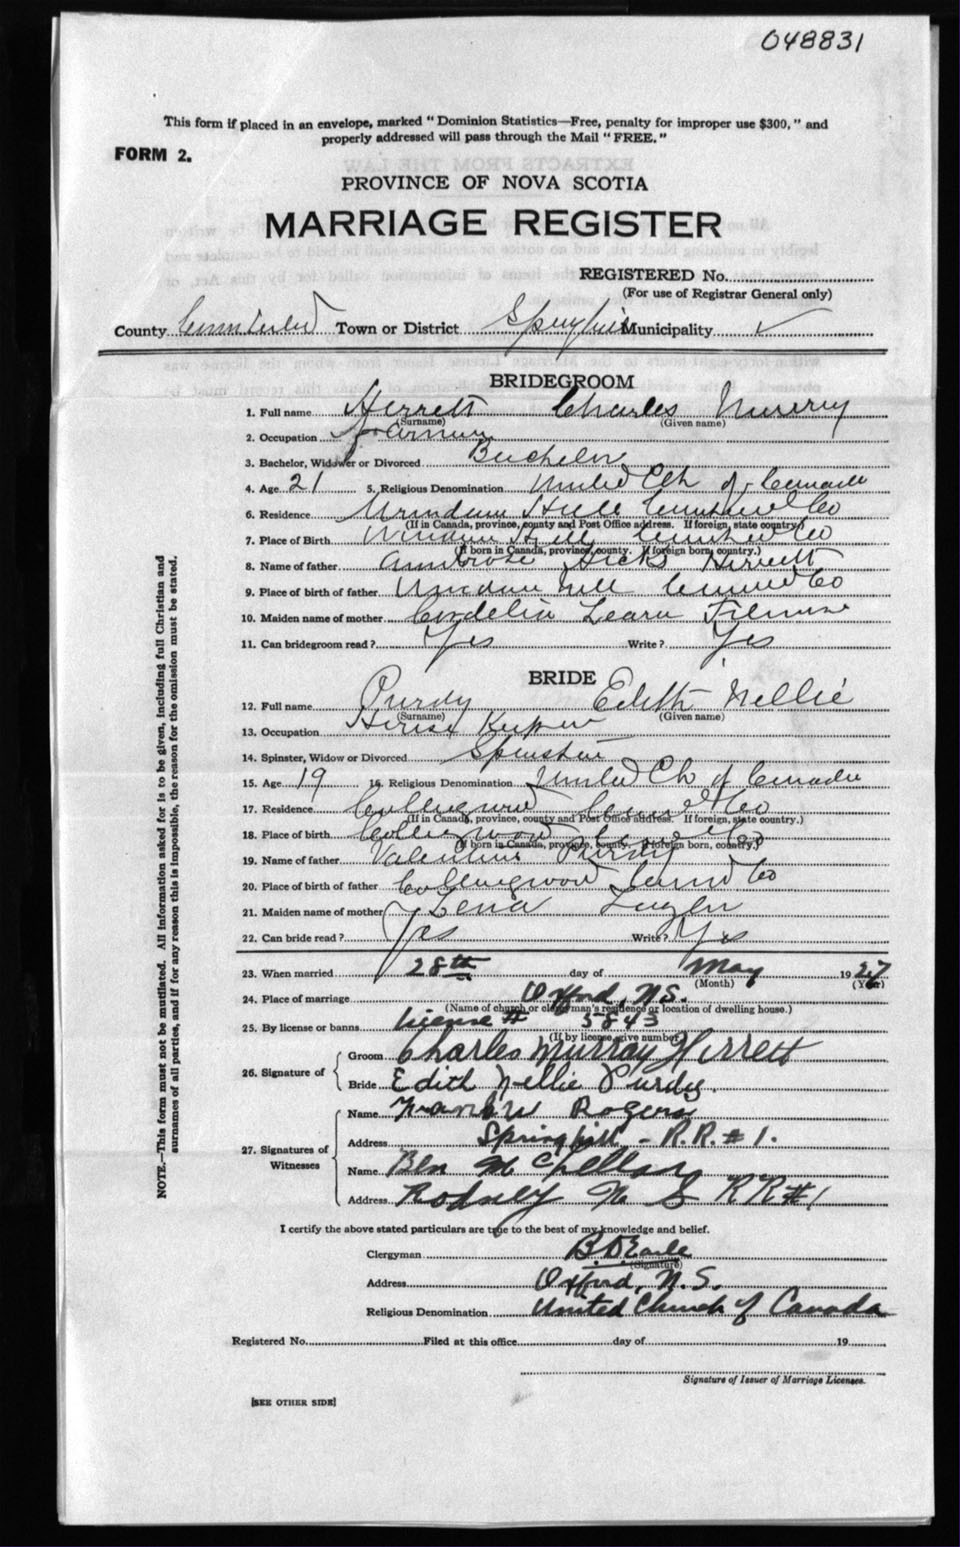 048831
This form if placed in an envelope, marked " Dominion Statistics—Free, penalty for improper use $300, " and
properly addressed will pass through the Mail " FREE. "
FORM 2.
PROVINCE OF NOVA SCOTIA
MARRIAGE REGISTER
REGISTERED No.
(For use of Registrar General only)
County Cumberland Town or District Springhill Municipality ✓
BRIDEGROOM
1. Full name Herrett Charles Murray
(Surname) (Given name)
2. Occupation Farmer
3. Bachelor, Widower or Divorced Bachelor
4. Age 21 5. Religious Denomination United Ch of Canada
6. Residence Windham Hill Cumberland Co
(If in Canada, province, county and Post Office address. If foreign, state country.)
7. Place of Birth Windham Hill Cumberland Co
(If born in Canada, province, county. If foreign born, country.)
8. Name of father Ambrose Hicks Herrett
9. Place of birth of father Windham Hill Co
10. Maiden name of mother Cordelia
11. Can bridegroom read? Yes Write? Yes
BRIDE
12. Full name Purdy Edith Nellie
(Surname) (Given name)
13. Occupation House Keeper
14. Spinster, Widow or Divorced Spinster
15. Age 19 16. Religious Denomination United Ch of Canada
17. Residence Collingwood Co
(If in Canada, province, county and Post Office address. If foreign, state country.)
18. Place of birth Collingwood Co
(If born in Canada, province, county. If foreign born, country.)
19. Name of father Valentine Purdy
20. Place of birth of father Collingwood Cumb Co
21. Maiden name of mother Lena
22. Can bride read? Yes Write? Yes
23. When married 28th day of May 1927
(Month) (Year)
24. Place of marriage Oxford, N.S.
(Name of church or clergyman's residence or location of dwelling house.)
25. By license or banns License # 5843
(If by license, give number)
26. Signature of
Groom Charles Murray Herrett
Bride Edith Nellie Purdy.
27. Signatures of Witnesses
Name Rogers
Address Springhill - R.R. # 1.
Name Ben McLellan
Address Rodney N S RR #1
I certify the above stated particulars are true to the best of my knowledge and belief.
Clergyman B.D Earle
(Signature)
Address Oxford, N.S.
Religious Denomination United Church of Canada
Registered No. Filed at this office day of 19
Signature of Issuer of Marriage Licenses.
[SEE OTHER SIDE]
NOTE.—This form must not be mutilated. All information asked for is to be given, including full Christian and
surnames of all parties, and if for any reason this is impossible, the reason for the omission must be stated.